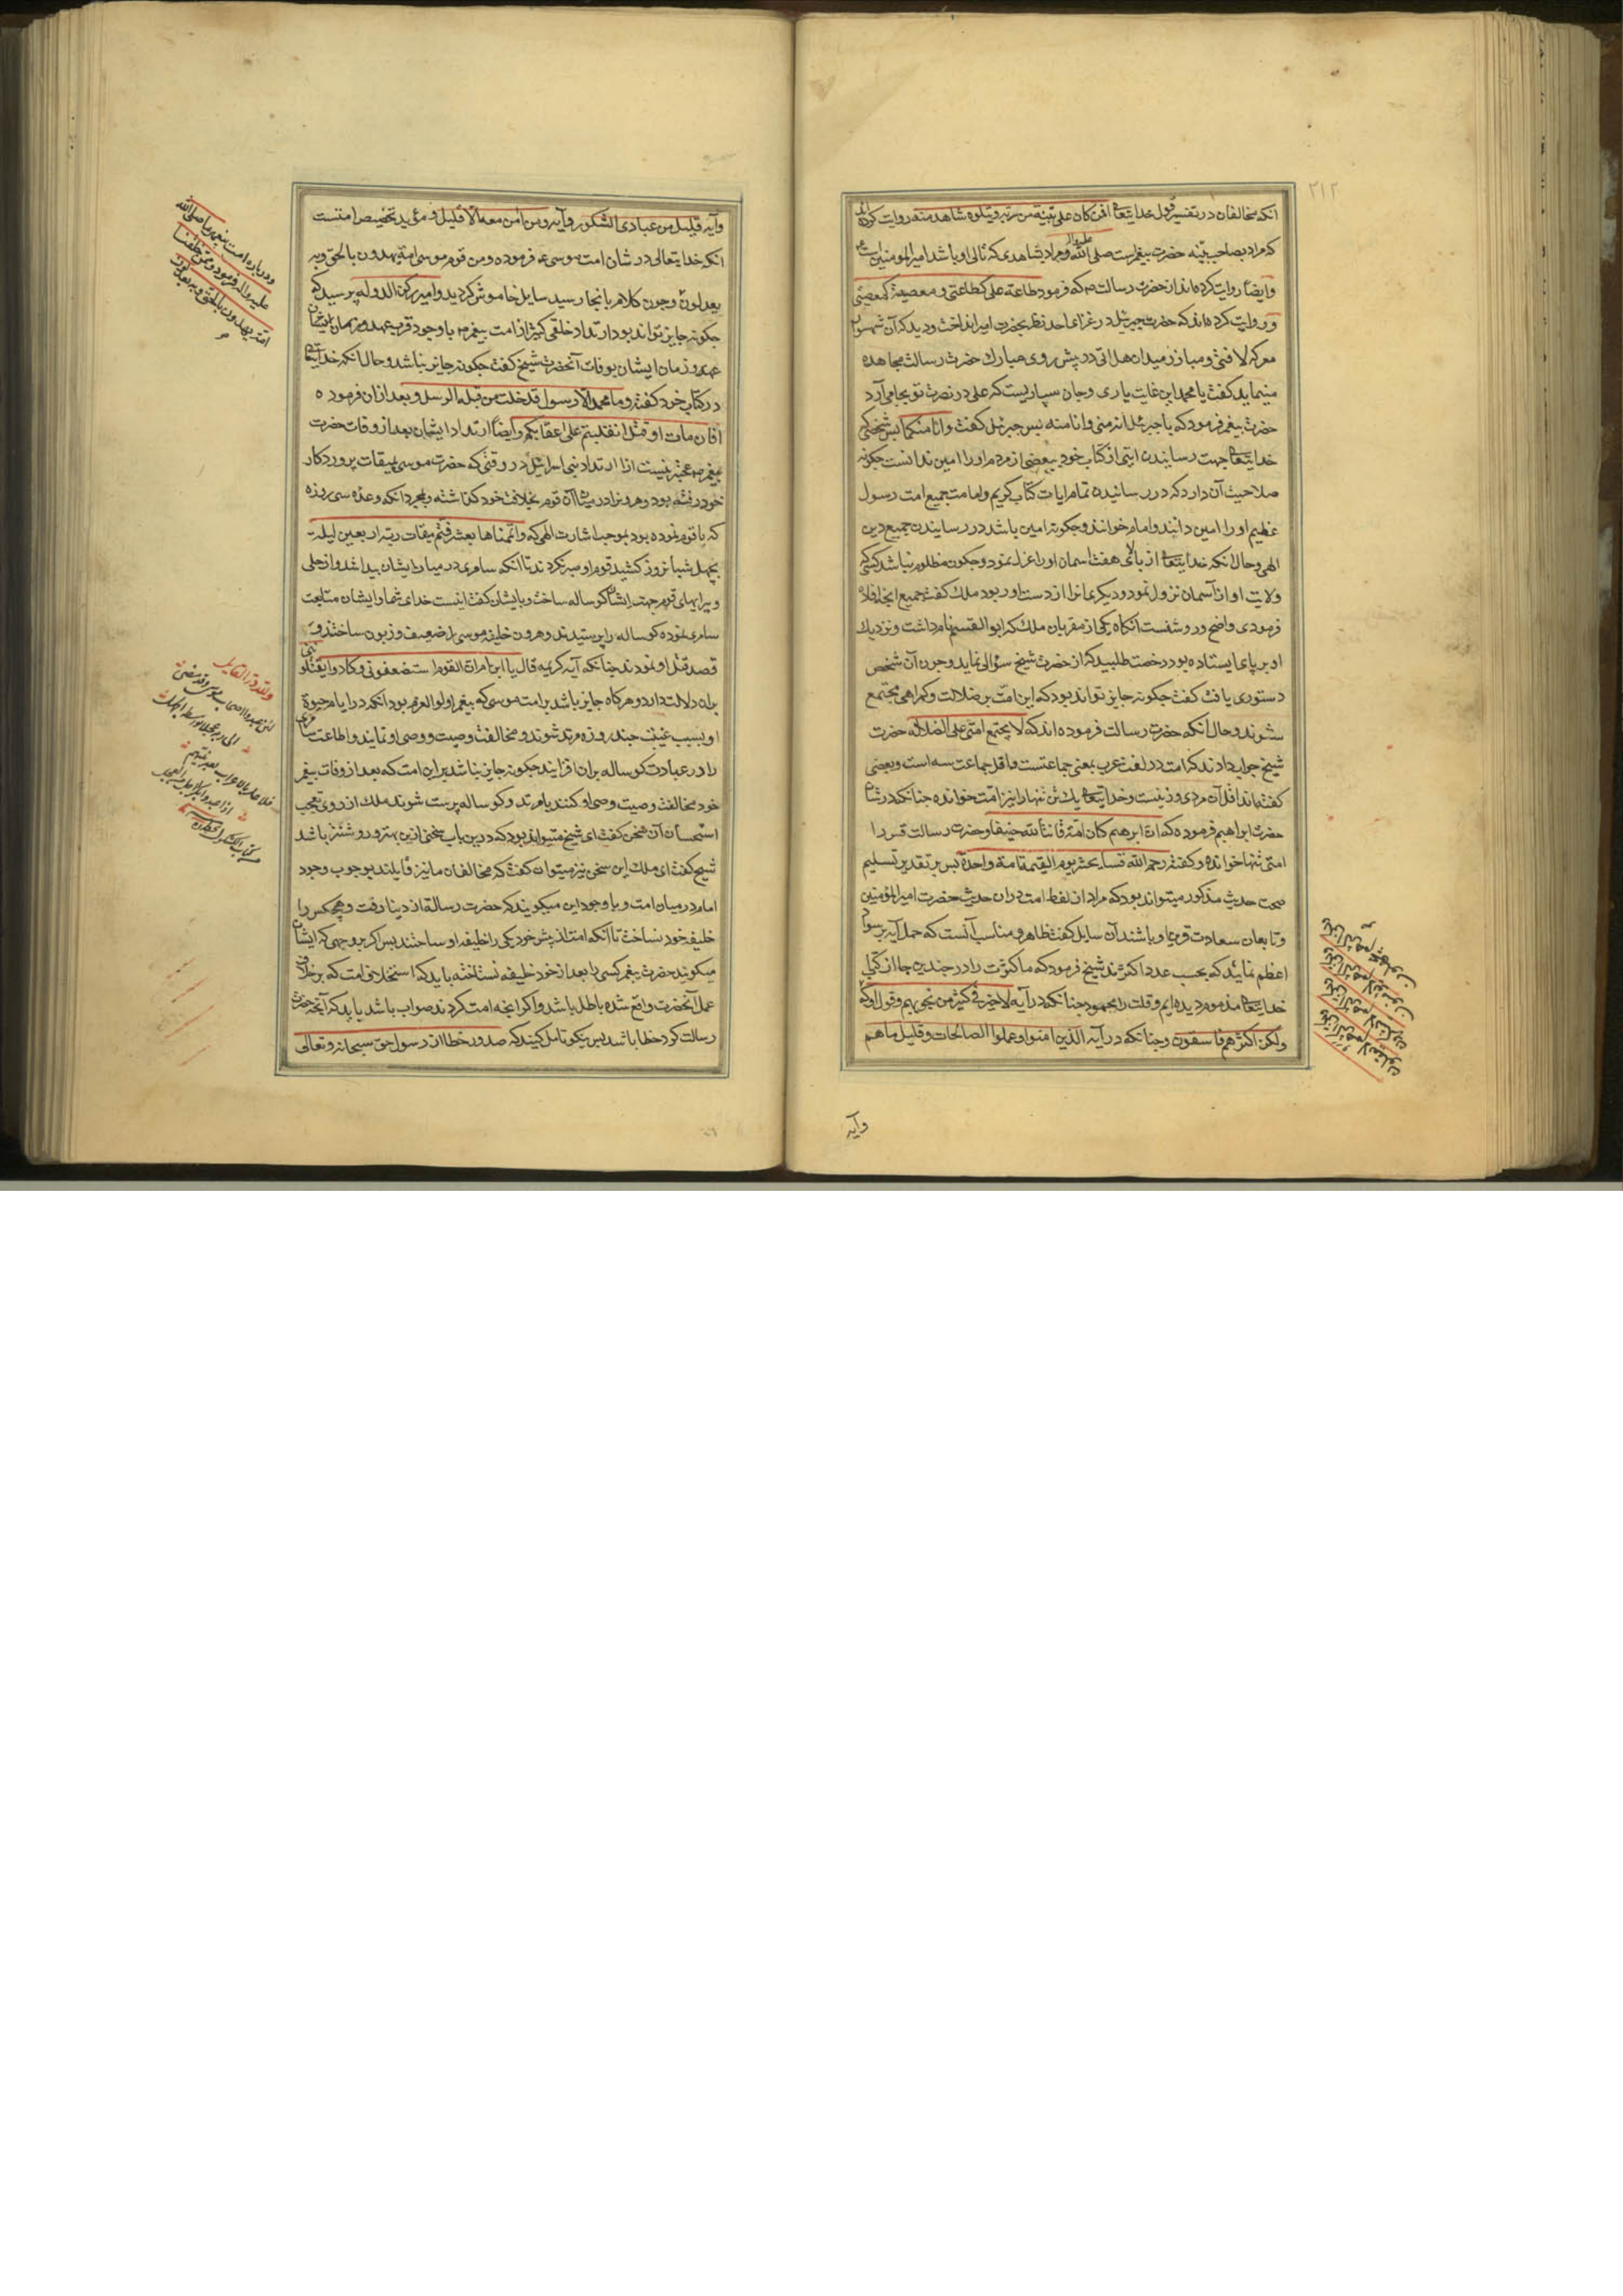 ۲۱۲
آنکه مخالفان در تفسیر قول خدایتعالی افمن کان علی بینة من ربه و یتلوه شاهد منه روایت کرده‌اند
که مراد بصاحب بینه حضرت پیغمبراست صلی الله علیه واله و مراد بشاهدی که تالی او باشد امیرالمومنین است
و ایضا روایت کرده‌اند از حضرت رسالت ص که فرمود طاعة علی کطاعتی و معصیة کمعصیتی
و روایت کرده‌اند که حضرت جبرئیل در غزای احد نظر بحضرت امیر انداخت و دید که آن شهسوار
معرکه لا فتی و مبارز میدان هل اتی در پیش روی مبارک حضرت رسالت مجاهده
مینماید کفت یا محمد این غایت یاری و جان سپاریست که علی در نصرت تو بجا می‌آرد
حضرت پیغمبر فرمود که یا جبرئیل انه منی و انا منه پس جبرئیل کفت و انا منکما پس شخصی که
خدایتعالی جهت رسانیدن ایتی از کتاب خود ببعضی از مردم او را امین ندانست چکونه
صلاحیت آن دارد که در رسانیدن تمام ایات کتاب کریم و امامت جمیع امت رسول
عظیم او را امین دانند و امام خوانند و چکونه امین باشد در رسانیدن جمیع دین
الهی و حال آنکه خدایتعالی از بالای هفت اسمان او را عزل نمود و چکونه مظلوم نباشد کسی که
ولایت او از آسمان نزول نمود و دیکری مانرا از دست او ربود ملک کفت جمیع انچه افاده
فرمودی واضح و روشنست آنکاه یکی از مقربان ملک که ابو القسم نام داشت و نزدیک
او بر پای ایستاده بود رخصت طلبید که از حضرت شیخ سؤالی نماید و چون آن شخص
دستوری یافت کفت چکونه جایز تواند بود که این امت بر ضلالت و کمراهی مجتمع
شوند و حال آنکه حضرت رسالت فرموده‌اند که لا یجتمع امتی علی الضلالة حضرت
شیخ جواب دادند که امت در لغت عرب بمعنی جماعتست و اقل جماعت سه است و بعضی
کفته‌اند اقل آن مردی و زنیست و خدایتعالی یک تن تنها را نیز امت خوانده چنانکه در شان
حضرت ابراهیم فرموده که ان ابرهیم کان امة قانتا لله حنیفا و حضرت رسالت قس را
امتی تنها خوانده و کفته رحم الله قسا یحشر یوم القیمة امة واحدة پس بر تقدیر تسلیم
صحت حدیث مذکور میتواند بود که مراد از لفظ امت در ان حدیث حضرت امیرالمؤمنین
و تابعان سعادت قرین او باشند آن سایل کفت ظاهر و مناسب آنست که حمل آیه بر سواد
اعظم نمائید که بحسب عدد اکثرند شیخ فرمود که ما کثرت را در چندین جا از کتاب
خدایتعالی مذموم دیده‌ایم و قلت را محمود چنانکه در آیه لا خیر فی کثیر من نجویهم و قول او که
ولکن اکثرهم فاسقون و چنانکه در آیه الذین امنوا و عملوا الصالحات و قلیل ما هم
وآیه
وآیه قلیل من عبادی الشکور و آیه و من امن معه الا قلیل و مؤید تخصیص امتست
آنکه خدایتعالی در شان امت موسی ع فرموده و من قوم موسی امة یهدون بالحق و به
یعدلون و چون کلام بانجا رسید سایل خاموش کردید و امیر رکن الدوله پرسید که
چکونه جایز تواند بود ارتداد خلقی کثیر از امت پیغمبر ص با وجود قرب عهد و زمان ایشان
عهد و زمان ایشان بوفات آنحضرت شیخ کفت چکونه جایز نباشد و حال آنکه خدایتعالی
در کتاب خود کفته و ما محمد الا رسول قد خلت من قبله الرسل و بعد ازان فرموده
افان مات او قتل انقلبتم علی اعقابکم و ایضا ارتداد ایشان بعد از وفات حضرت
پیغمبر ص عجبتر نیست از ارتداد بنی اسرائیل در وقتی که حضرت موسی بمیقات پروردکار
خود رفته بود و هرون را در میان آن قوم بخلافت خود کذاشته و بمجرد آنکه وعده سی روزه
که با قوم نموده بود بموجب اشارت الهی که و اتممناها بعشر فتم میقات ربه اربعین لیله
بچهل شبانروز کشید قوم او صبر نکردند تا آنکه سامری در میان ایشان پیدا شد و از حلی
و پیرایهای قوم جهت ایشان کوساله ساخت و بایشان کفت اینست خدای شما و ایشان متابعت
سامری نموده کوساله را پرستیدند و هرون خلیفه موسی را ضعیف و زبون ساختند و
قصد قتل او نمودند چنانکه آیه کریمه قال یا ابن ام ان القوم استضعفونی و کادوا یقتلوننی
بران دلالت دارد و هرکاه جایز باشد بر امت موسی که پیغمبر اولوالعزم بود آنکه در ایام حیوة
او بسبب غیبت چند روزه مرتد شوند و مخالفت وصیت و وصی او نمایند و اطاعت سامری
را در عبادت کوساله بران افزایند چکونه جایز نباشد بر این امت که بعد از وفات پیغمبر
خود مخالفت وصیت و وصی او کنند یا مرتد و کوساله پرست شوند ملک از روی تعجب
استحسان آن سخن کفت ای شیخ میتواند بود که درین باب سخنی ازین بهتر و روشنتر باشد
شیخ کفت ای ملک این سخن نیز میتوان کفت که مخالفان ما نیز قایلند بوجوب وجود
امام در میان امت و با وجود این میکویند که حضرت رسالة از دنیا رفت و هیچکس را
خلیفه خود نساخت تا آنکه امت از پیش خود یکی را خلیفه او ساختند پس اکر بر وجهی که ایشان
میکویند حضرت پیغمبر کسی را بعد از خود خلیفه نساخته باید که استخلاف امت که بر خلاف
عمل آنحضرت واقع شده باطل باشد و اکر انچه امت کردند صواب باشد باید که آنچه حضرت
رسالت کرد خطا باشد پس نیکو تامل کنید که صدور خطا از رسول حق سبحانه و تعالی
ودرباره امت پیغمبر ما صلی الله
علیه واله فرمود و ممن خلقنا
امة یهدون بالحق و به یعدلون
ولله در القایل